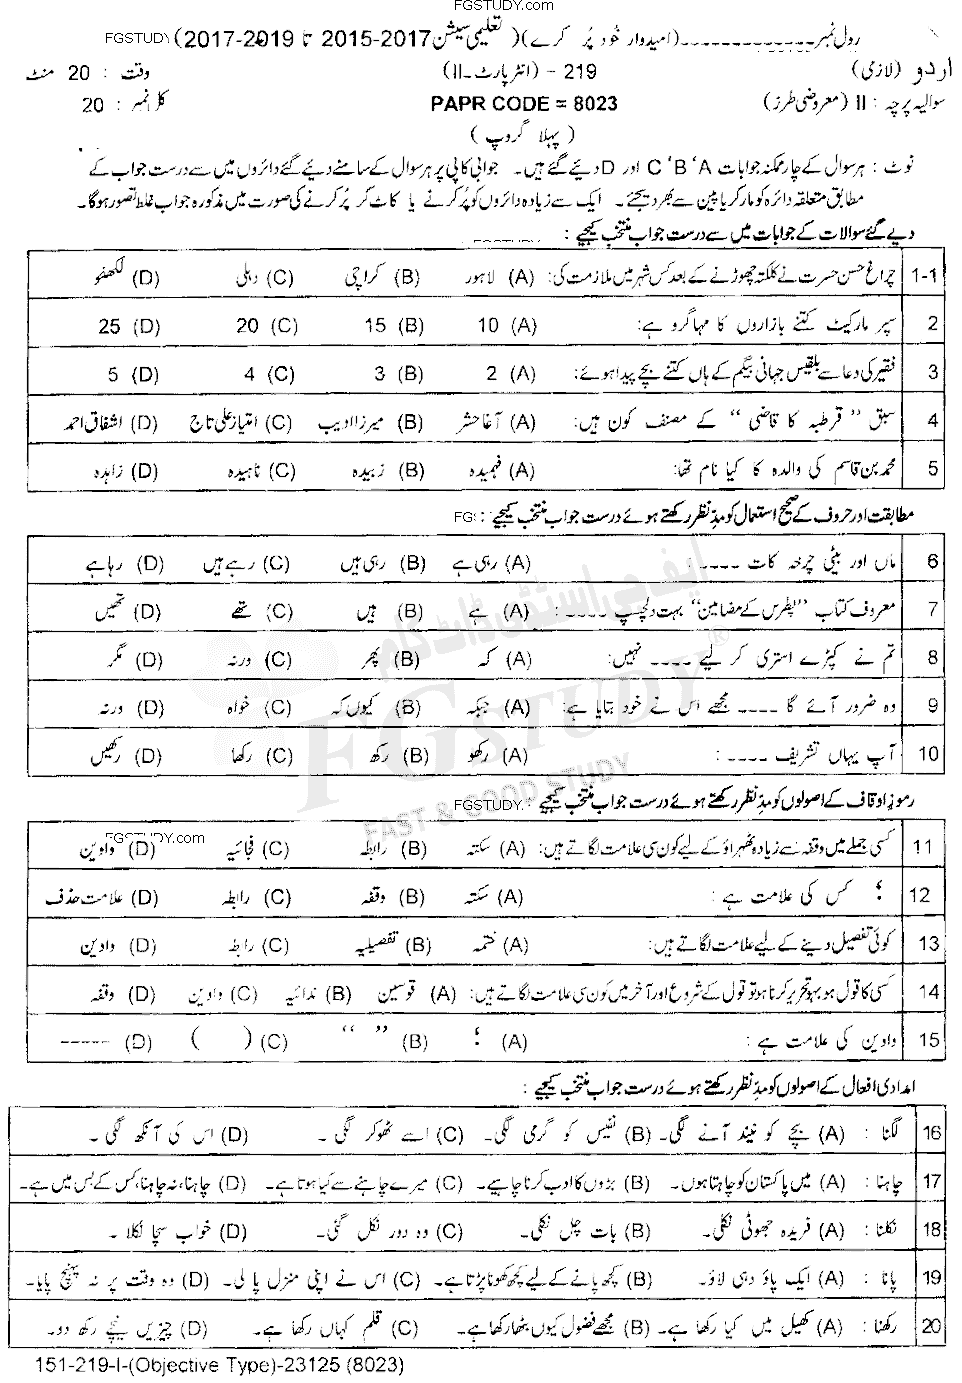 FGSTUDY.com
رول نمبر ـــــــــــــ (امیدوار خود پُر کرے) (تعلیمی سیشن 2017-2015 تا 2019-2017) FGSTUDY.com
اردو (لازمی) 219 - (انٹر پارٹ-II) وقت : 20 منٹ
سوالیہ پرچہ : II (معروضی طرز) PAPR CODE = 8023 کل نمبر : 20
(پہلا گروپ)
نوٹ : ہر سوال کے چار ممکنہ جوابات A ‘B ‘C اور D دیئے گئے ہیں۔ جوابی کاپی پر ہر سوال کے سامنے دیئے گئے دائروں میں سے درست جواب کے
مطابق متعلقہ دائرہ کو مارکر یا پین سے بھر دیجئے۔ ایک سے زیادہ دائروں کو پُر کرنے یا کاٹ کر پُر کرنے کی صورت میں مذکورہ جواب غلط تصور ہوگا۔
دیے گئے سوالات کے جوابات میں سے درست جواب منتخب کیجیے : FGSTUDY.com
1-1 چراغ حسن حسرت نے کلکتہ چھوڑنے کے بعد کس شہر میں ملازمت کی: (A) لاہور (B) کراچی (C) دہلی (D) لکھنؤ
2 سپر مارکیٹ کتنے بازاروں کا مہا گرو ہے: (A) 10 (B) 15 (C) 20 (D) 25
3 فقیر کی دعا سے بلقیس جہانی بیگم کے ہاں کتنے بچے پیدا ہوئے: (A) 2 (B) 3 (C) 4 (D) 5
4 سبق ”قرطبہ کا قاضی“ کے مصنف کون ہیں: (A) آغا حشر (B) میرزا ادیب (C) امتیاز علی تاج (D) اشفاق احمد
5 محمد بن قاسم کی والدہ کا کیا نام تھا: (A) فہمیدہ (B) زبیدہ (C) ناہیدہ (D) زاہدہ
مطابقت اور حروف کے صحیح استعمال کو مدِنظر رکھتے ہوئے درست جواب منتخب کیجیے :
6 ماں اور بیٹی چرخہ کات ---- : (A) رہی ہے (B) رہی ہیں (C) رہے ہیں (D) رہا ہے
7 معروف کتاب ”پطرس کے مضامین“ بہت دلچسپ ---- : (A) ہے (B) ہیں (C) تھے (D) تھیں
8 تم نے کپڑے استری کر لیے ---- نہیں: (A) کہ (B) پھر (C) ورنہ (D) مگر
9 وہ ضرور آئے گا ---- مجھے اس نے خود بتایا ہے: (A) جبکہ (B) کیوں کہ (C) خواہ (D) ورنہ
10 آپ یہاں تشریف ---- : (A) رکھو (B) رکھ (C) رکھا (D) رکھیں
رموزِ اوقاف کے اصولوں کو مدِنظر رکھتے ہوئے درست جواب منتخب کیجیے : FGSTUDY.
11 کسی جملے میں وقفہ سے زیادہ ٹھہراؤ کے لیے کون سی علامت لگاتے ہیں: (A) سکتہ (B) رابطہ (C) فجائیہ (D) واوین
12 ؛ کس کی علامت ہے : (A) سکتہ (B) وقفہ (C) رابطہ (D) علامت حذف
13 کوئی تفصیل دینے کے لیے علامت لگاتے ہیں: (A) ختمہ (B) تفصیلیہ (C) رابطہ (D) واوین
14 کسی کا قول ہو بہو تحریر کرنا ہو تو قول کے شروع اور آخر میں کون سی علامت لگاتے ہیں: (A) قوسین (B) ندائیہ (C) واوین (D) وقفہ
15 واوین کی علامت ہے : (A) ؛ (B) ” “ (C) ( ) (D) -----
امدادی افعال کے اصولوں کو مدِنظر رکھتے ہوئے درست جواب منتخب کیجیے :
16 لگنا : (A) بچے کو نیند آنے لگی۔ (B) نفیس کو گرمی لگی۔ (C) اسے ٹھوکر لگی۔ (D) اس کی آنکھ لگی۔
17 چاہنا : (A) میں پاکستان کو چاہتا ہوں۔ (B) بڑوں کا ادب کرنا چاہیے۔ (C) میرے چاہنے سے کیا ہوتا ہے۔ (D) چاہنا، نہ چاہنا، کس کے بس میں ہے۔
18 نکلنا : (A) فریدہ جھوٹی نکلی۔ (B) بات چل نکلی۔ (C) وہ دور نکل گئی۔ (D) خواب سچا نکلا۔
19 پانا : (A) ایک پاؤ دہی لاؤ۔ (B) کچھ پانے کے لیے کچھ کھونا پڑتا ہے۔ (C) اس نے اپنی منزل پا لی۔ (D) وہ وقت پر نہ پہنچ پایا۔
20 رکھنا : (A) کھیل میں کیا رکھا ہے۔ (B) مجھے فضول کیوں بٹھا رکھا ہے۔ (C) قلم کہاں رکھا ہے۔ (D) چیزیں نیچے رکھ دو۔
151-219-I-(Objective Type)-23125 (8023)
ایف جی اسٹڈی ڈاٹ کام
FGSTUDY®
FAST & GOOD STUDY